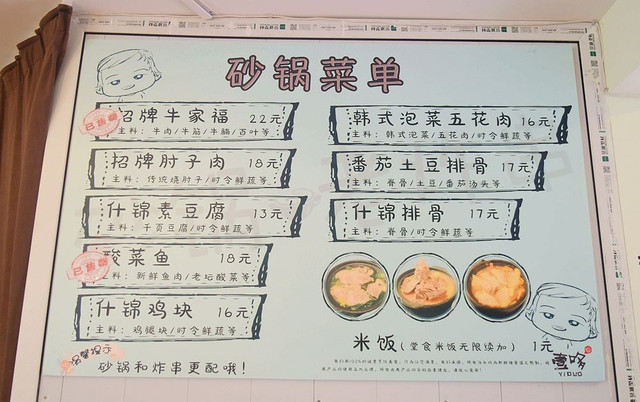 砂锅菜单
招牌牛家福 22元
主料：牛肉/牛筋/牛腩/百叶等
已售罄
招牌肘子肉 18元
主料：传统烧肘子/时令鲜蔬等
什锦素豆腐 13元
主料：千页豆腐/时令鲜蔬等
酸菜鱼 18元
主料：新鲜鱼肉/老坛酸菜等
已售罄
什锦鸡块 16元
主料：鸡腿块/时令鲜蔬等
温馨提示
砂锅和炸串更配哦！
韩式泡菜五花肉 16元
主料：韩式泡菜/五花肉/时令鲜蔬等
番茄土豆排骨 17元
主料：脊骨/土豆/番茄汤头等
什锦排骨 17元
主料：脊骨/时令鲜蔬等
米饭(堂食米饭无限续加) 1元
壹哆
YIDUO